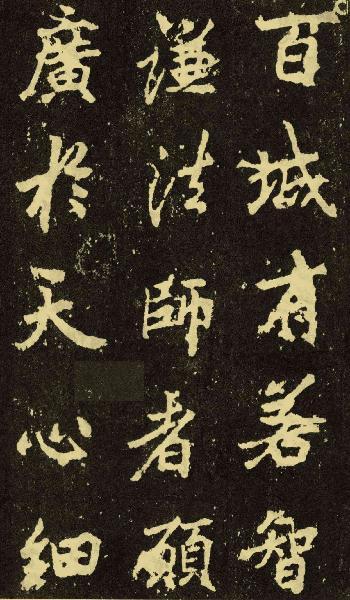 百城有若智
謙法師者願
廣於天心細